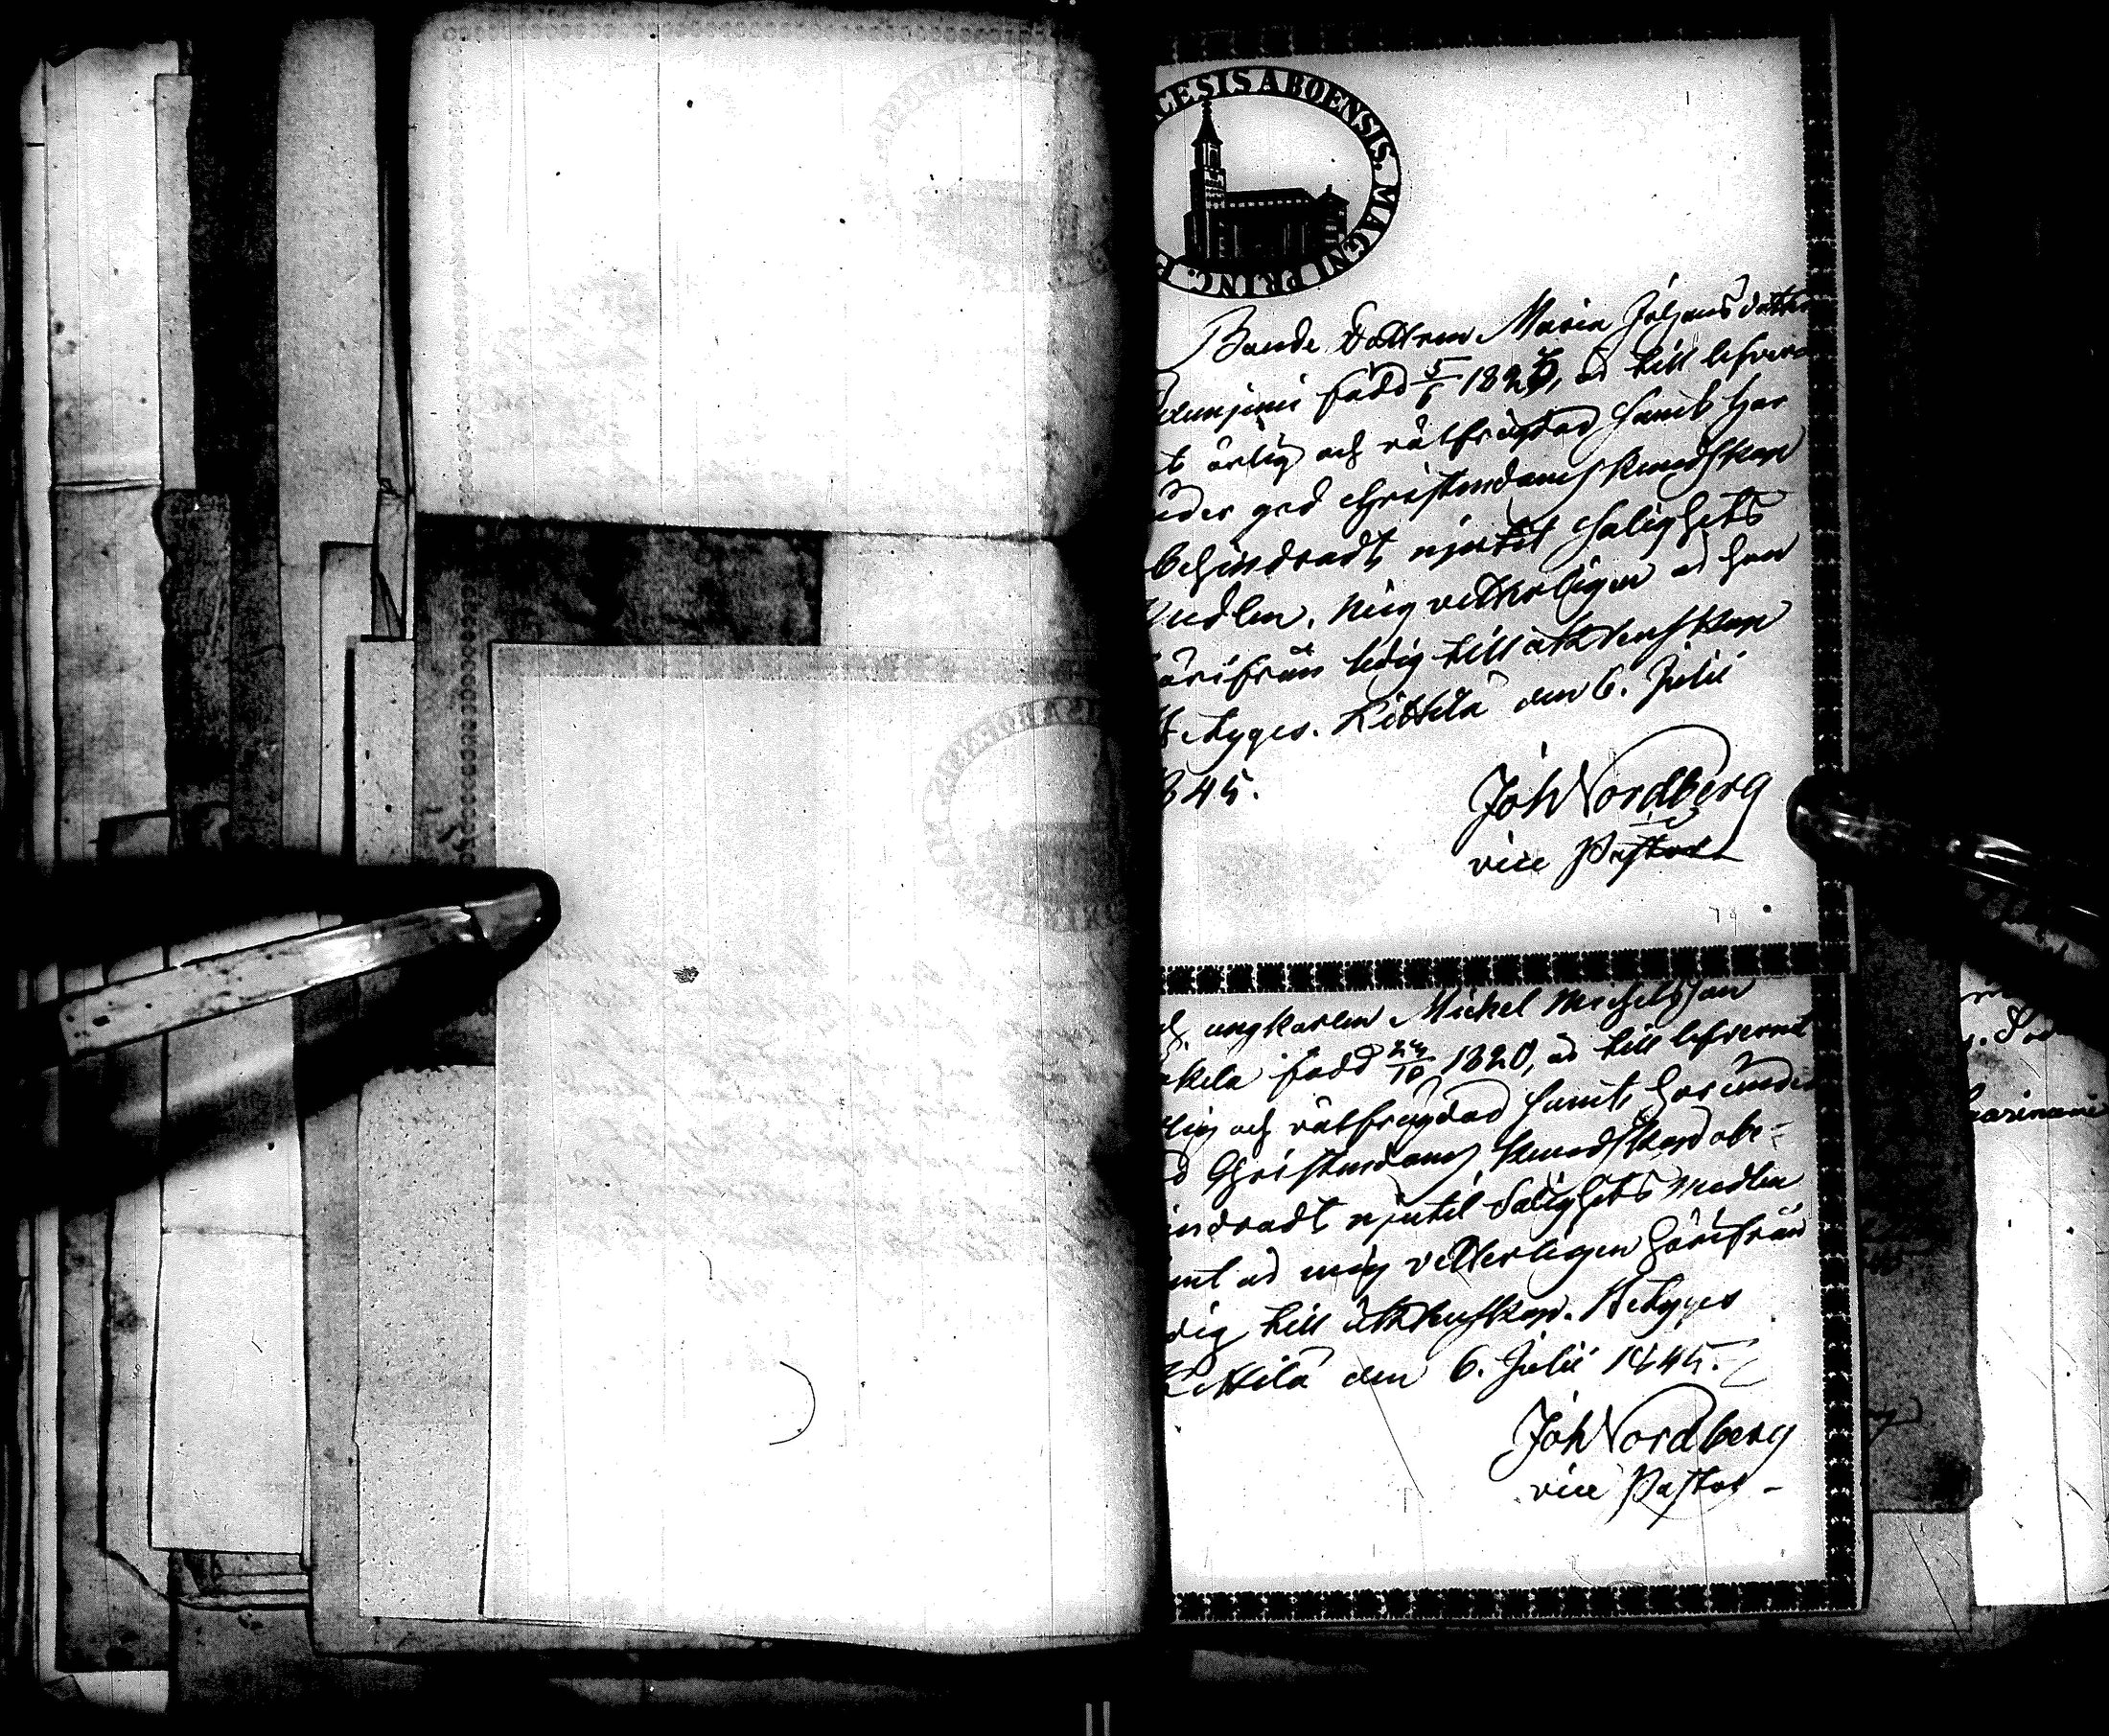 CESIS ABOENSIS. MAGNI PRINC. F
Bonde Dottren Maria Johans dotter
född 5/6 1825, är till lefverne
t ärlig och rätfrägdad samt har
under god Christendoms kunskap
behindradt njutit Salighets
Medlen. Mig vetterligen är hon
härifrån ledig till äktenskap
Betyges. Kittilä den 6. Julii
1845.
Joh Nordberg
vice Pastor
ungkarlen Mickel Michelsson
kela född 24/10 1820, är till lefvernet
rlig och rätfrägdad samt har under
d Christendoms kundskap obe-
indradt njutit Salighets Medlen
amt är mig vetterligen härifrån
dig till äktenskap. Betyges
Kittilä den 6. Julii 1845.
Joh Nordberg
vice Pastor